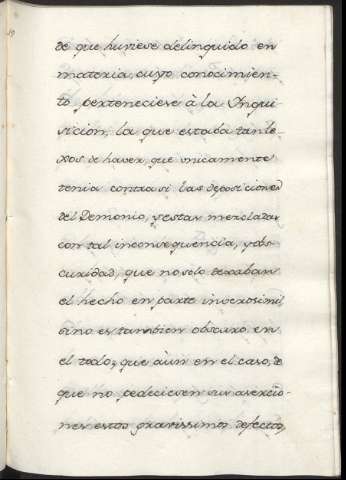 de que huviese delinquido en
materia, cuyo conocimien-
to perteneciese à la Ynqui-
sicion, la que estaba tan le-
xos de haver, que unicamente
tenia contra si las deposiciones
del Demonio, y estas mezcladas
con tal inconsequencia, y obs-
curidad, que no solo dexaban
el hecho en parte inverosimil
sino es tambien obscuro en
el todo; y que aùn en el caso, de
que no padeciesen sus asercio-
nes estos gravissimos defectos,